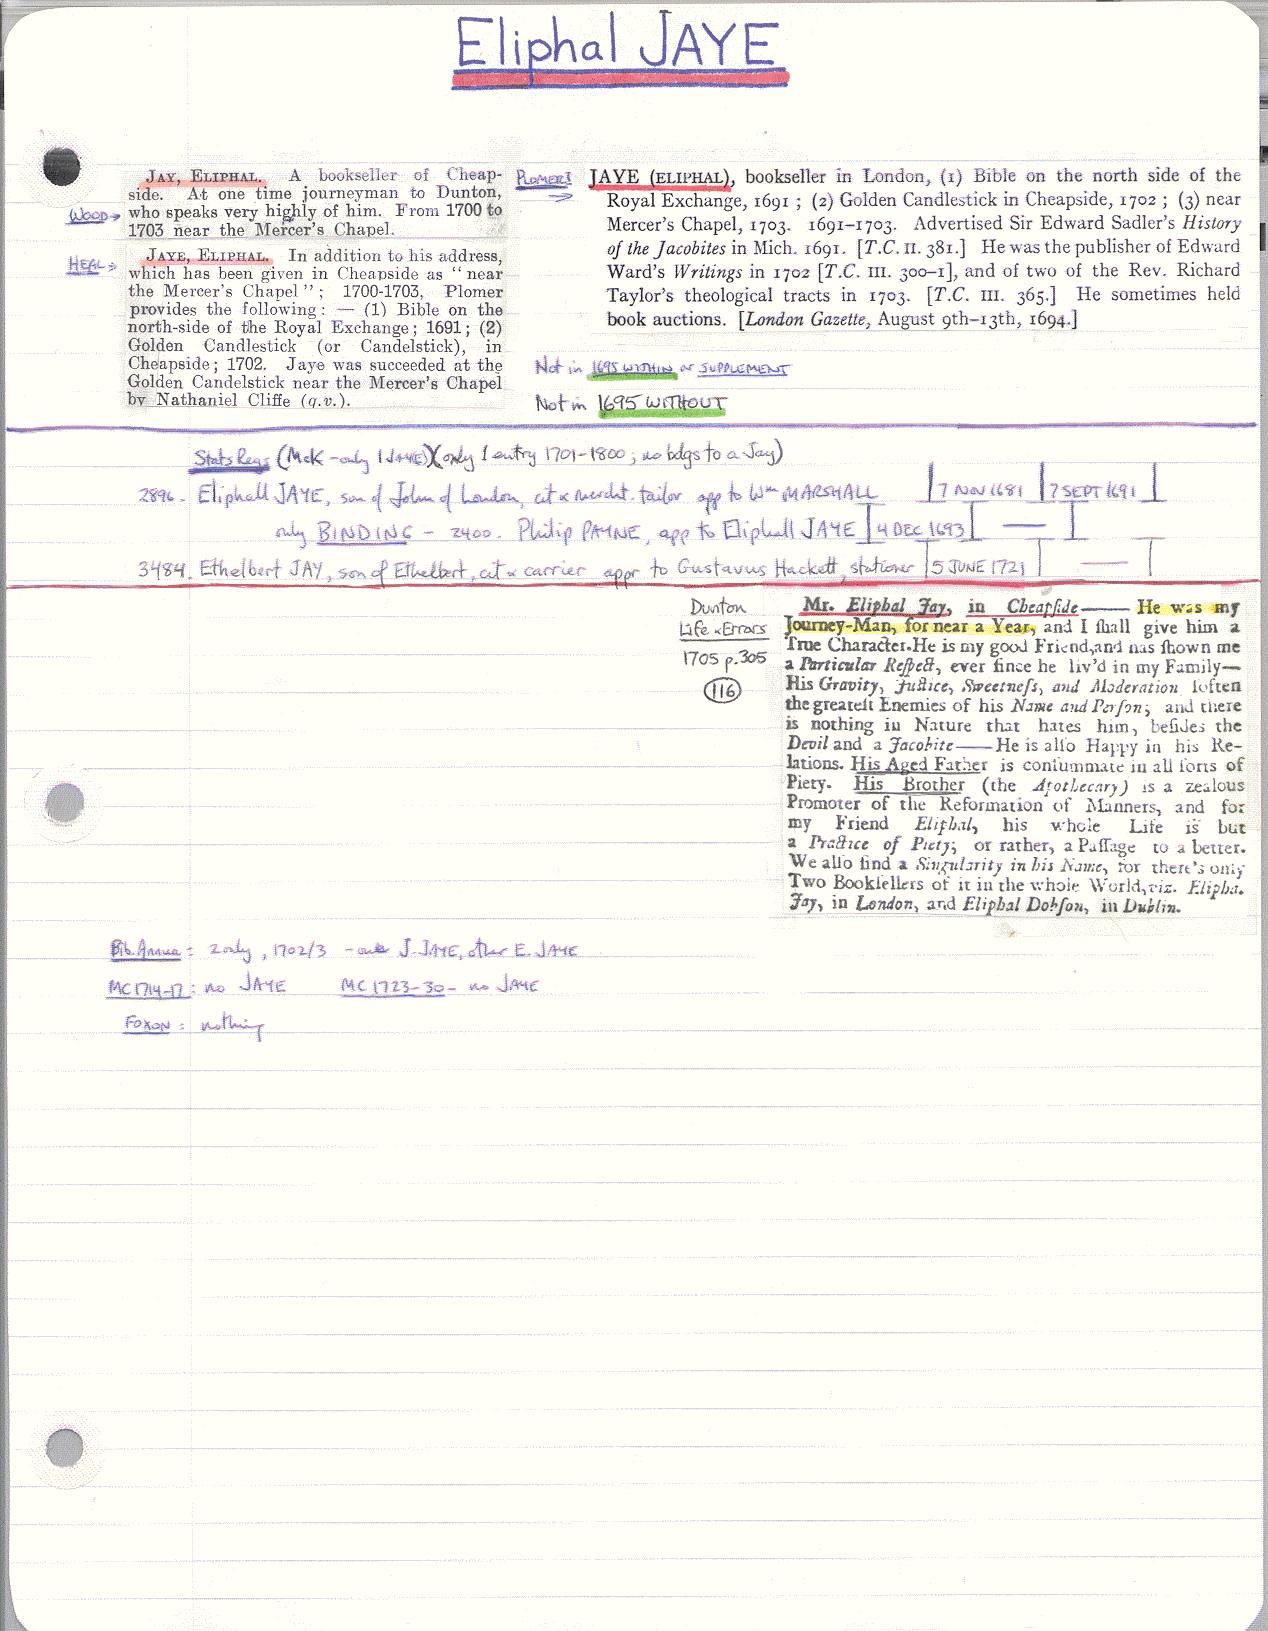 Eliphal JAYE
WOOD→
JAY, ELIPHAL. A bookseller of Cheap-
side. At one time journeyman to Dunton,
who speaks very highly of him. From 1700 to
1703 near the Mercer's Chapel.
HEAL→
JAYE, ELIPHAL. In addition to his address,
which has been given in Cheapside as "near
the Mercer's Chapel"; 1700-1703, Plomer
provides the following: — (1) Bible on the
north-side of the Royal Exchange; 1691; (2)
Golden Candlestick (or Candelstick), in
Cheapside; 1702. Jaye was succeeded at the
Golden Candelstick near the Mercer's Chapel
by Nathaniel Cliffe (q.v.).
PLOMER I →
JAYE (ELIPHAL), bookseller in London, (1) Bible on the north side of the
Royal Exchange, 1691; (2) Golden Candlestick in Cheapside, 1702; (3) near
Mercer's Chapel, 1703. 1691–1703. Advertised Sir Edward Sadler's History
of the Jacobites in Mich. 1691. [T.C. II. 381.] He was the publisher of Edward
Ward's Writings in 1702 [T.C. III. 300–1], and of two of the Rev. Richard
Taylor's theological tracts in 1703. [T.C. III. 365.] He sometimes held
book auctions. [London Gazette, August 9th–13th, 1694.]
Not in 1695 WITHIN or SUPPLEMENT
Not in 1695 WITHOUT
Stats Regs (McK - only 1 JAYE) (only 1 entry 1701-1800; no bdgs to a Jay)
2896. Eliphall JAYE, son of John of London, cit & mercht. tailor app to Wm MARSHALL | 7 NOV 1681 | 7 SEPT 1691 |
only BINDING - 2400. Philip PAYNE, app to Eliphall JAYE | 4 DEC 1693 | — |
3484. Ethelbert JAY, son of Ethelbert, cit & carrier appr to Gustavus Hackett, stationer | 5 JUNE 1721 | — |
Dunton
Life & Errors
1705 p.305
116
Mr. Eliphal Jay, in Cheapſide—— He was my
Journey-Man, for near a Year, and I ſhall give him a
True Character. He is my good Friend, and has ſhown me
a Particular Reſpect, ever ſince he liv'd in my Family—
His Gravity, Juſtice, Sweetneſs, and Moderation ſoften
the greateſt Enemies of his Name and Perſon; and there
is nothing in Nature that hates him, beſides the
Devil and a Jacobite—— He is alſo Happy in his Re-
lations. His Aged Father is conſummate in all ſorts of
Piety. His Brother (the Apothecary) is a zealous
Promoter of the Reformation of Manners, and for
my Friend Eliphal, his whole Life is but
a Practice of Piety; or rather, a Paſſage to a better.
We alſo find a Singularity in his Name, for there's only
Two Bookſellers of it in the whole World, viz. Elipha.
Jay, in London, and Eliphal Dobſon, in Dublin.
Bib. Annua: 2 only, 1702/3 - one J. JAYE, other E. JAYE
MC 1714-17: no JAYE MC 1723-30 - no JAYE
FOXON: nothing